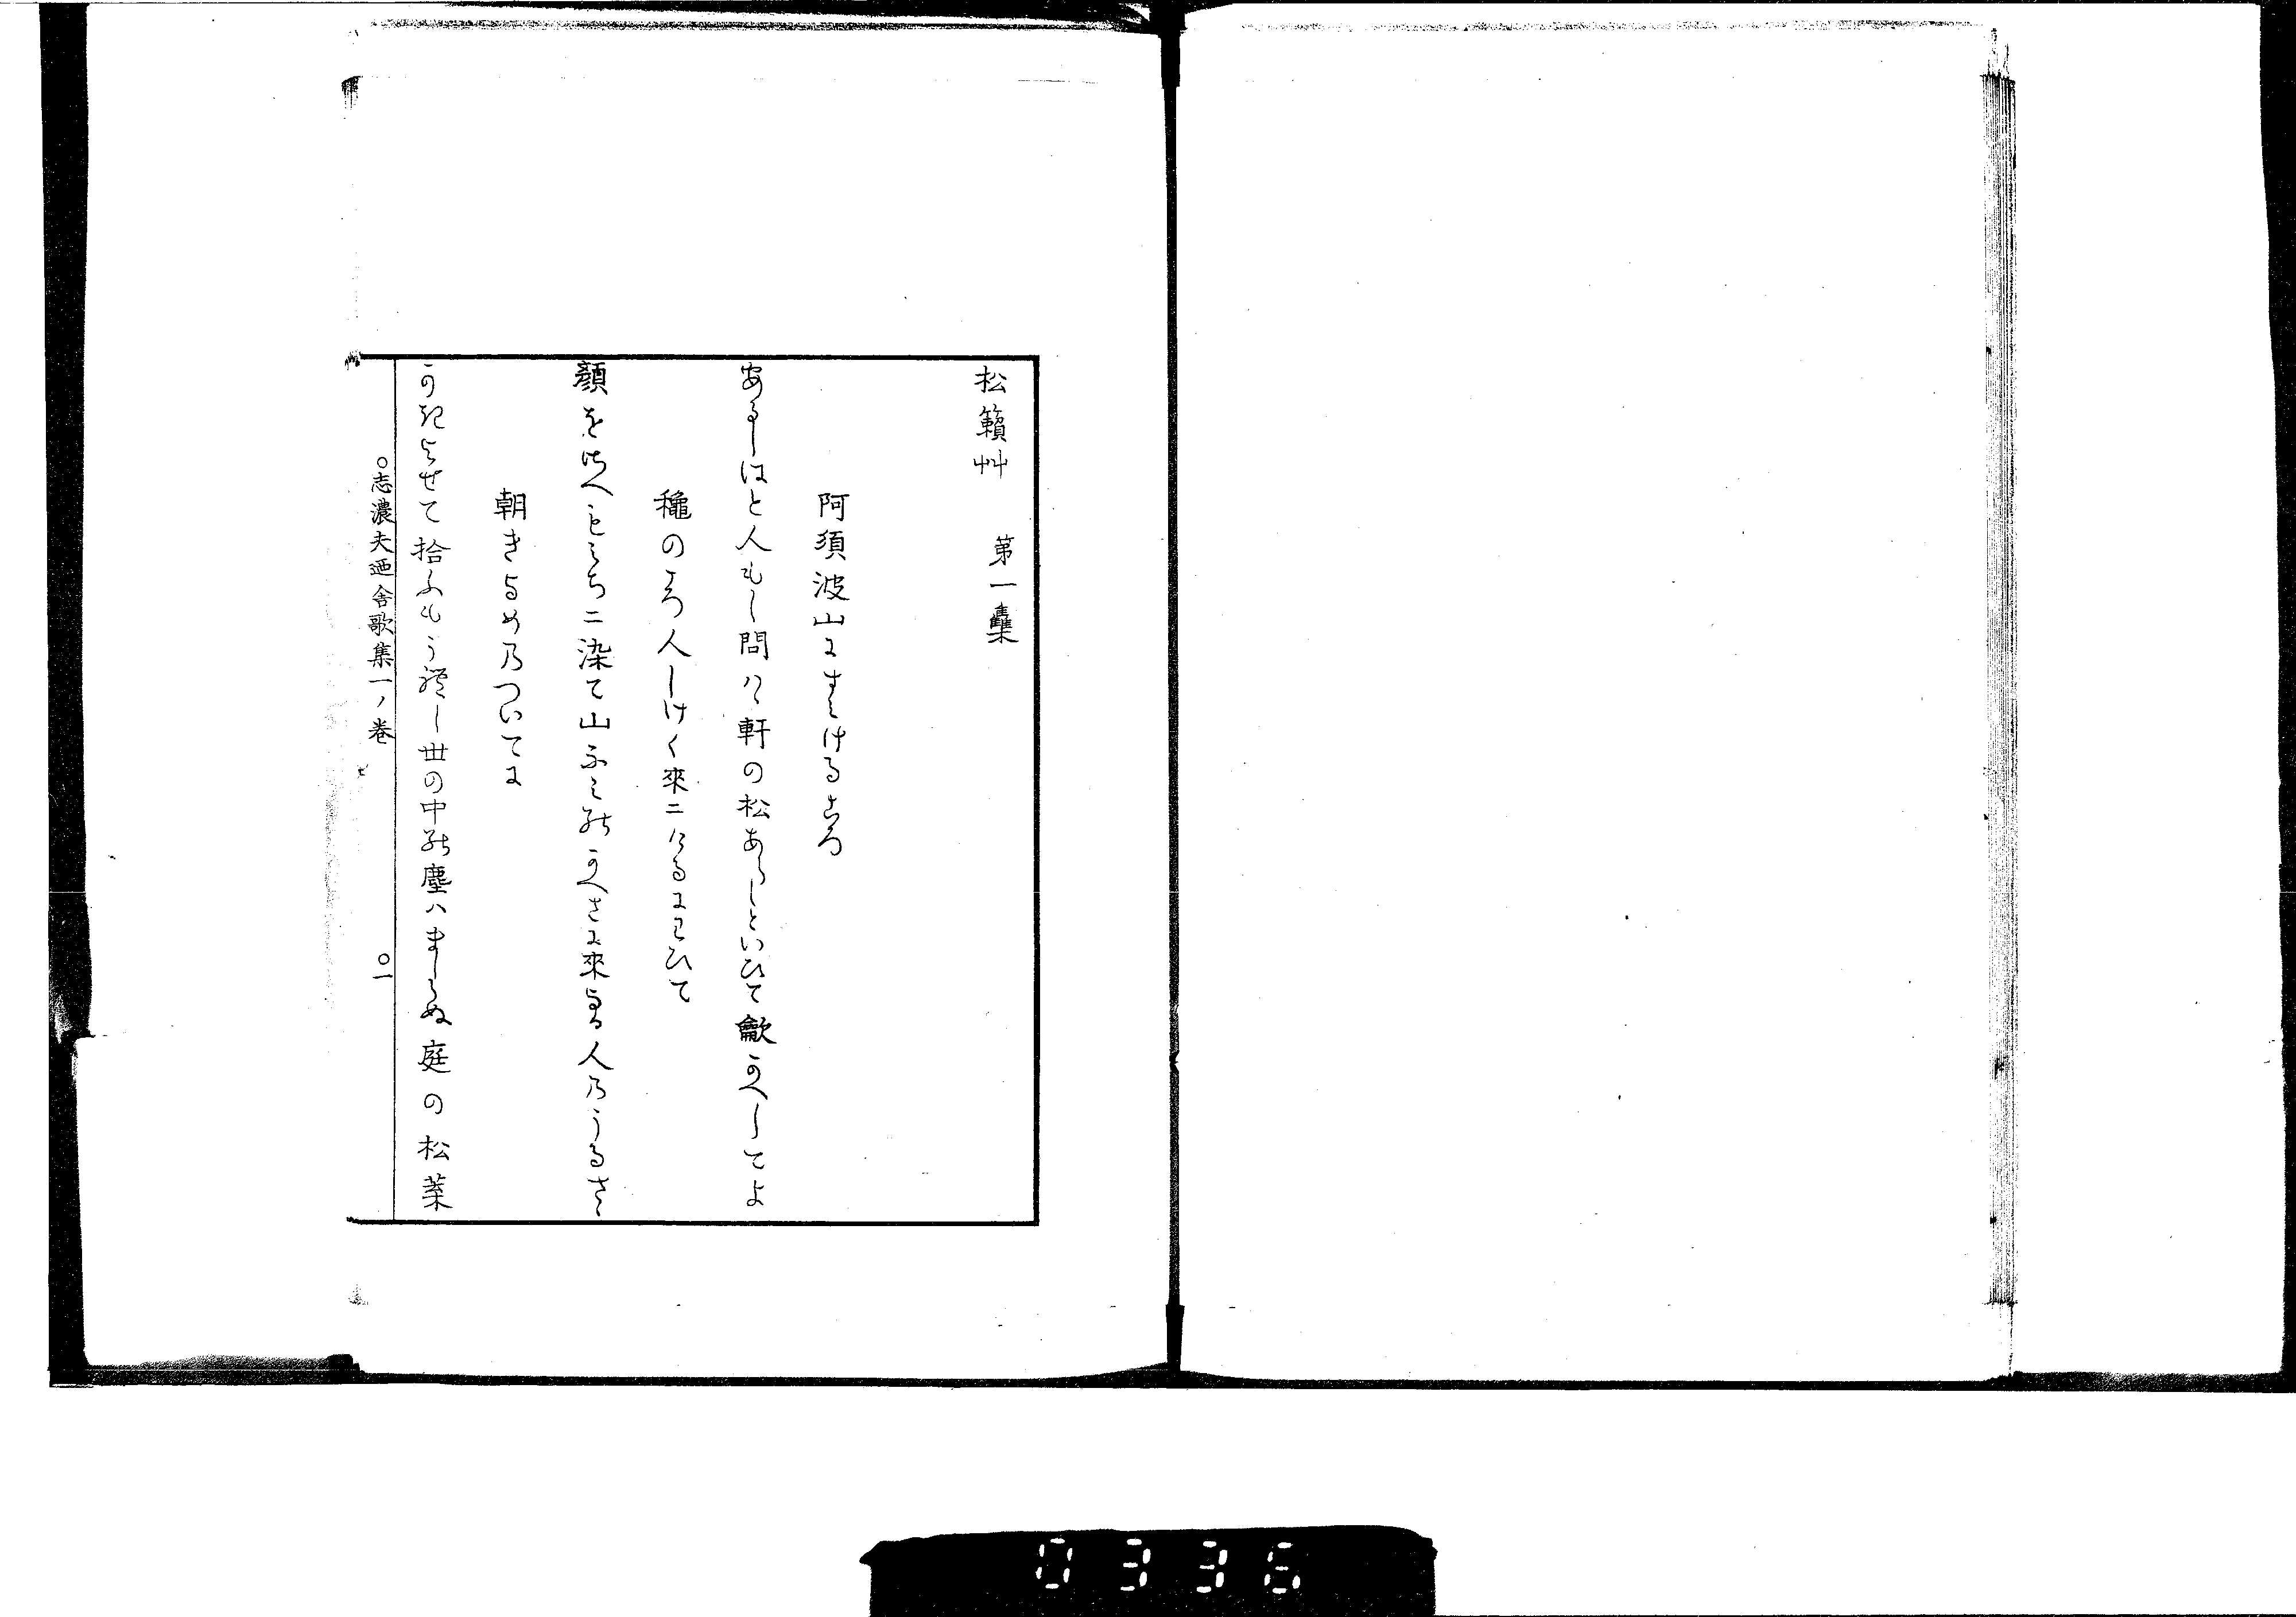 松籟艸　第一集
阿須波山にすみけるころ
あるしはと人もし問はゝ軒の松あらしといひて歙かへしてよ
穐のころ人しけく來にけるにわひて
顔をさへもみちに染て山ふみのかへさに來よる人乃うるさゝ
朝きよめ乃ついてに
かきよせて拾ふもうれし世の中の塵ハましらぬ庭の松葉
○志濃夫廼舎歌集一ノ巻　○一
0336